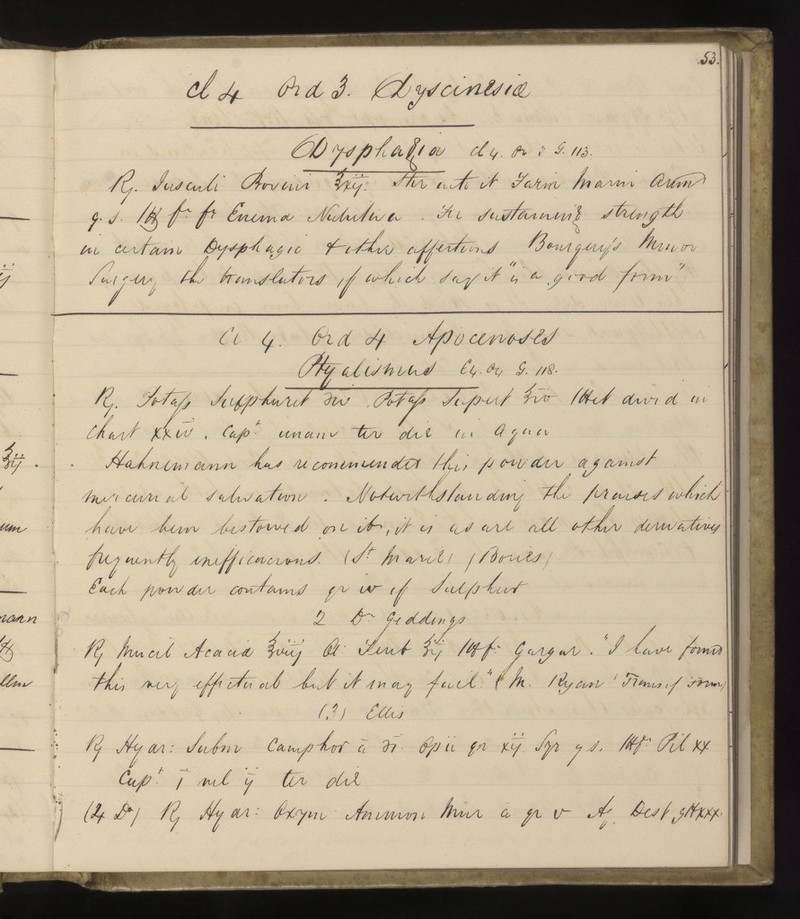 53.
Cl 4 Ord 3. Dyscinesiæ
Dysphagia Cl 4. Or 3 G. 113.
R. Jusculi Bovini ℥xij.
q. s. ft Enema Nutritiva. For sustaining strength
in certain Dysphagia & other affections Bourgery's Minor
Surgery the translators of which say it "is a good form"
Cl 4. Ord 4 Apocenoses
Ptyalismus C4. O4 G. 118.
R. Potass Sulphuret ʒiv Potass Supert ℥iv Met divid in
Chart xxiv. Capt unam ter die in Aqua
Hahnemann has recommended this powder against
mercurial salivation. Notwithstanding the praises which
have been bestowed on it, it is as are all other derivatives
frequently inefficacious. (St Marie) (Bories)
Each powder contains gr iv of Sulphur
2 Dr Geddings
R Mucil Acacia ℥viij Ol Tereb ℥ij Mft Gargar. "I have found
this very effectual but it may fail" (M. Ryan
(3) Ellis
R Hyar: Subm Camphor ā ʒi. Opii gr xij. Syr q s. Mft Pil xx
Capt i vel ij ter die
(4 Do) R Hyar: Oxym Ammon Mur ā gr v Aq. Dest